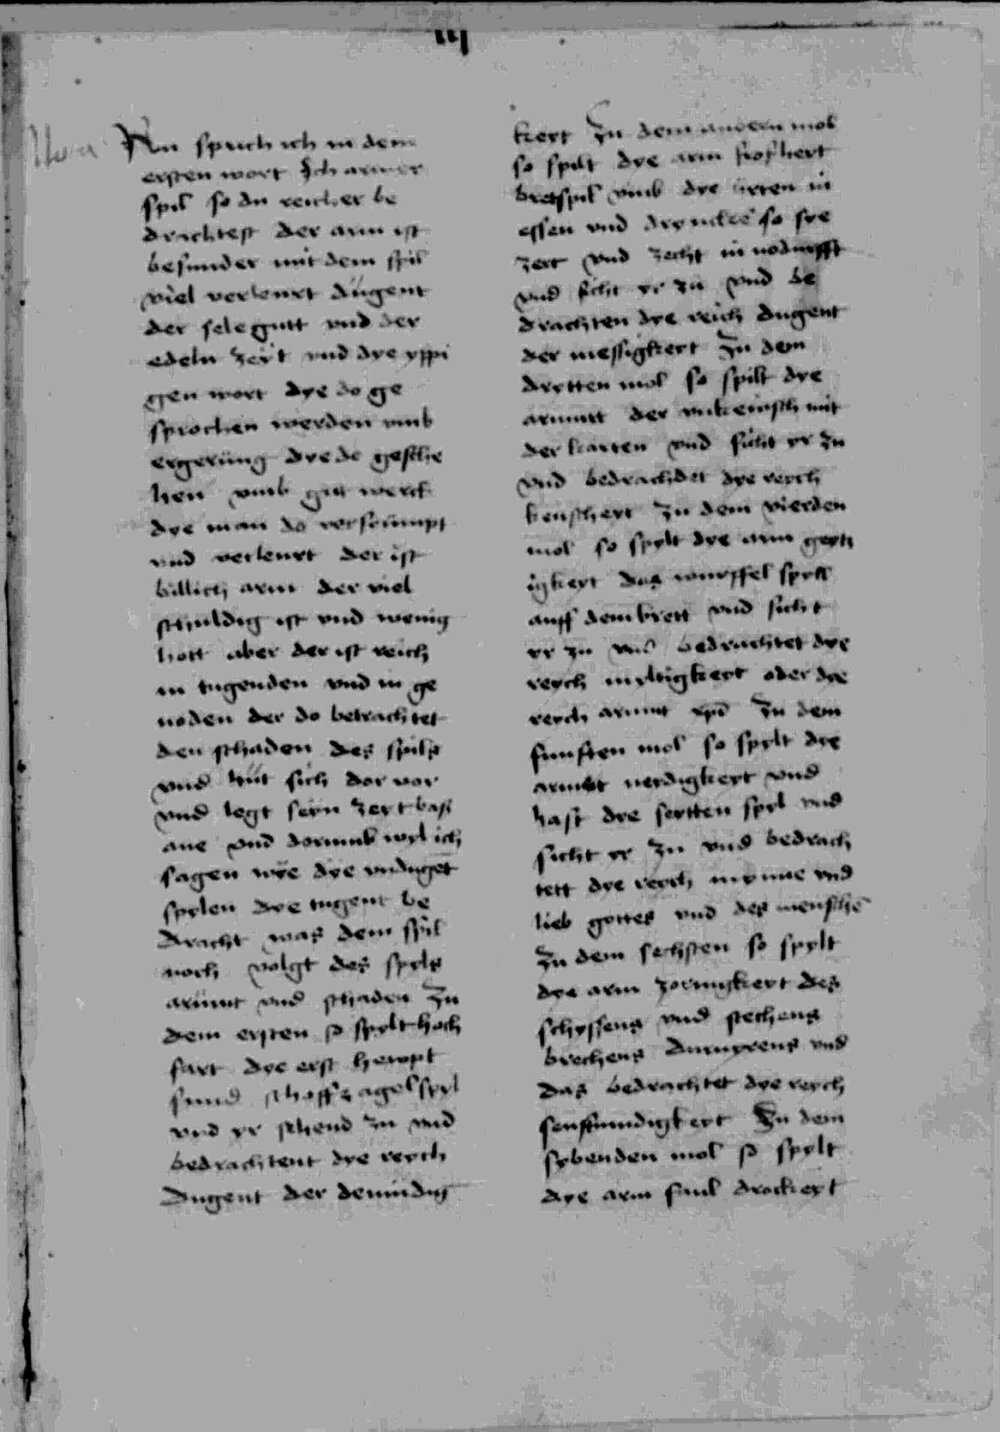 iij
Nu sprich ich in dem
ersten wort Ich armer
spil so du reicher be
drachtest der arm ist
besunder mit dem spil
viel verleurt dugent
der sele gutt vnd der
edeln zeyt vnd dye yppi
gen wort dye do ge
sprochen werden vmb
ergerung dye do gesche
hen vmb gut werck
dye man do verseumpt
vnd verleurt der ist
billich arm der viel
schuldig ist vnd wenig
hott aber der ist reich
in tugenden vnd in ge
noden der do betrachtet
den schaden des spils
vnd hüt sich dor vor
vnd legt seyn zeyt bas
ane vnd dorumb wyl ich
sagen wye dye vnduget
spylen dye tugent be
dracht was dem spil
noch volgt des spyls
armut vnd schaden Zu
dem ersten so spylt hoch
fart dye erst hewpt
sund schoffzagelspyl
vnd yr sehend zu vnd
bedrachtent dye reych
dugent der demudig
keyt Zu dem andern mol
so spilt dye arm froszheyt
bretspil vmb dye ürten in
essen vnd dryncken so sye
zert vnd zecht in nodurfft
vnd sicht yr zu vnd be
drachten dye reich dugent
der messigkeyt Zu dem
drytten mol so spilt dye
armutt der vnkeusch mit
der karten vnd sicht yr zu
vnd bedrachdet dye reych
keuscheyt Zu dem vierden
mol so spylt dye arm geyti
igkeyt das wurffel spyll
auff dem brett vnd sicht
yr zu vnd bedrachtet dye
reych myltigkeyt oder dye
reych armut xpi Zu dem
funften mol so spylt dye
armut neydigkeyt vnd
hasz dye seytten spyl vnd
sicht yr zu vnd bedrach
tett dye reych mynne vnd
lieb gottes vnd des mensche
Zu dem sechsten so spylt
dye arm zornigkeyt des
schyssens vnd stechens
brechens durnyrens vnd
das bedrachtet dye reych
senftmudigkeyt Zu dem
sybenden mol so spylt
dye arm faul drockeyt